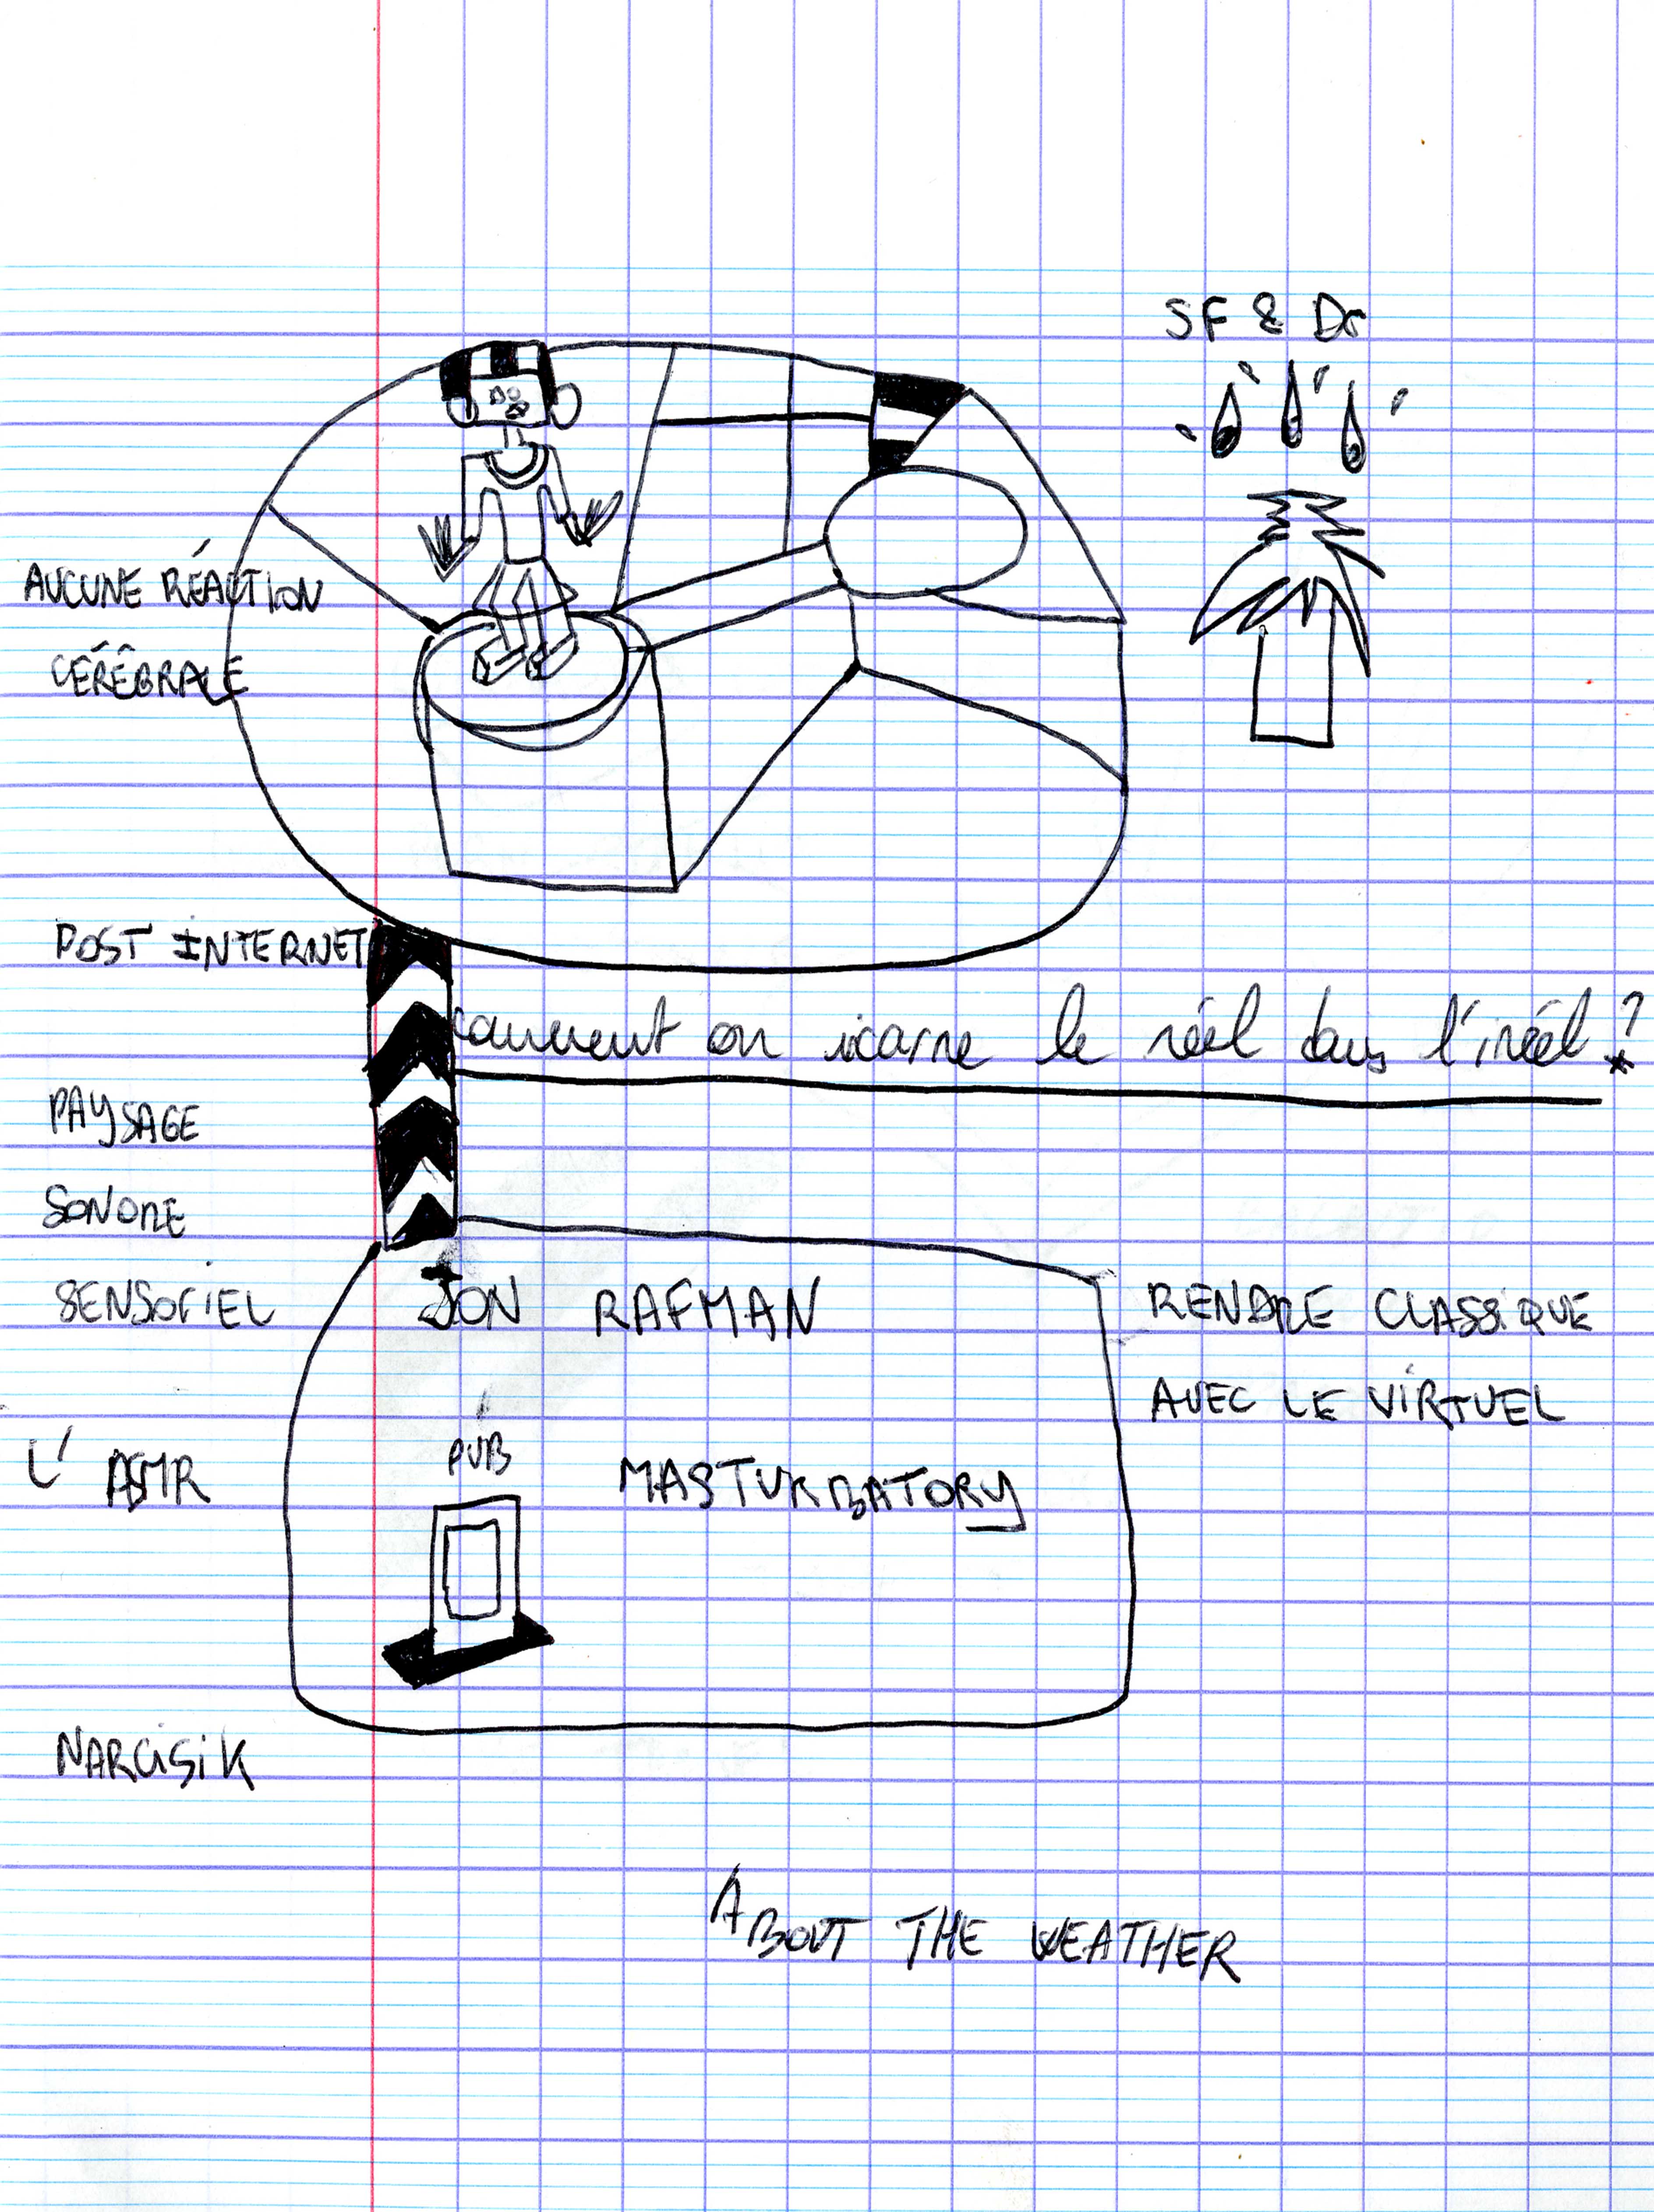 SF & Dr
AUCUNE RÉACTION
CÉRÉBRALE
POST INTERNET
comment on icarne le réel dans l'iréel ?
*
PAYSAGE
SONORE
SENSORIEL
JON RAFMAN
RENDRE CLASSIQUE
AVEC LE VIRTUEL
L' ASMR
PUB
MASTURBATORY
NARCISIK
ABOUT THE WEATHER